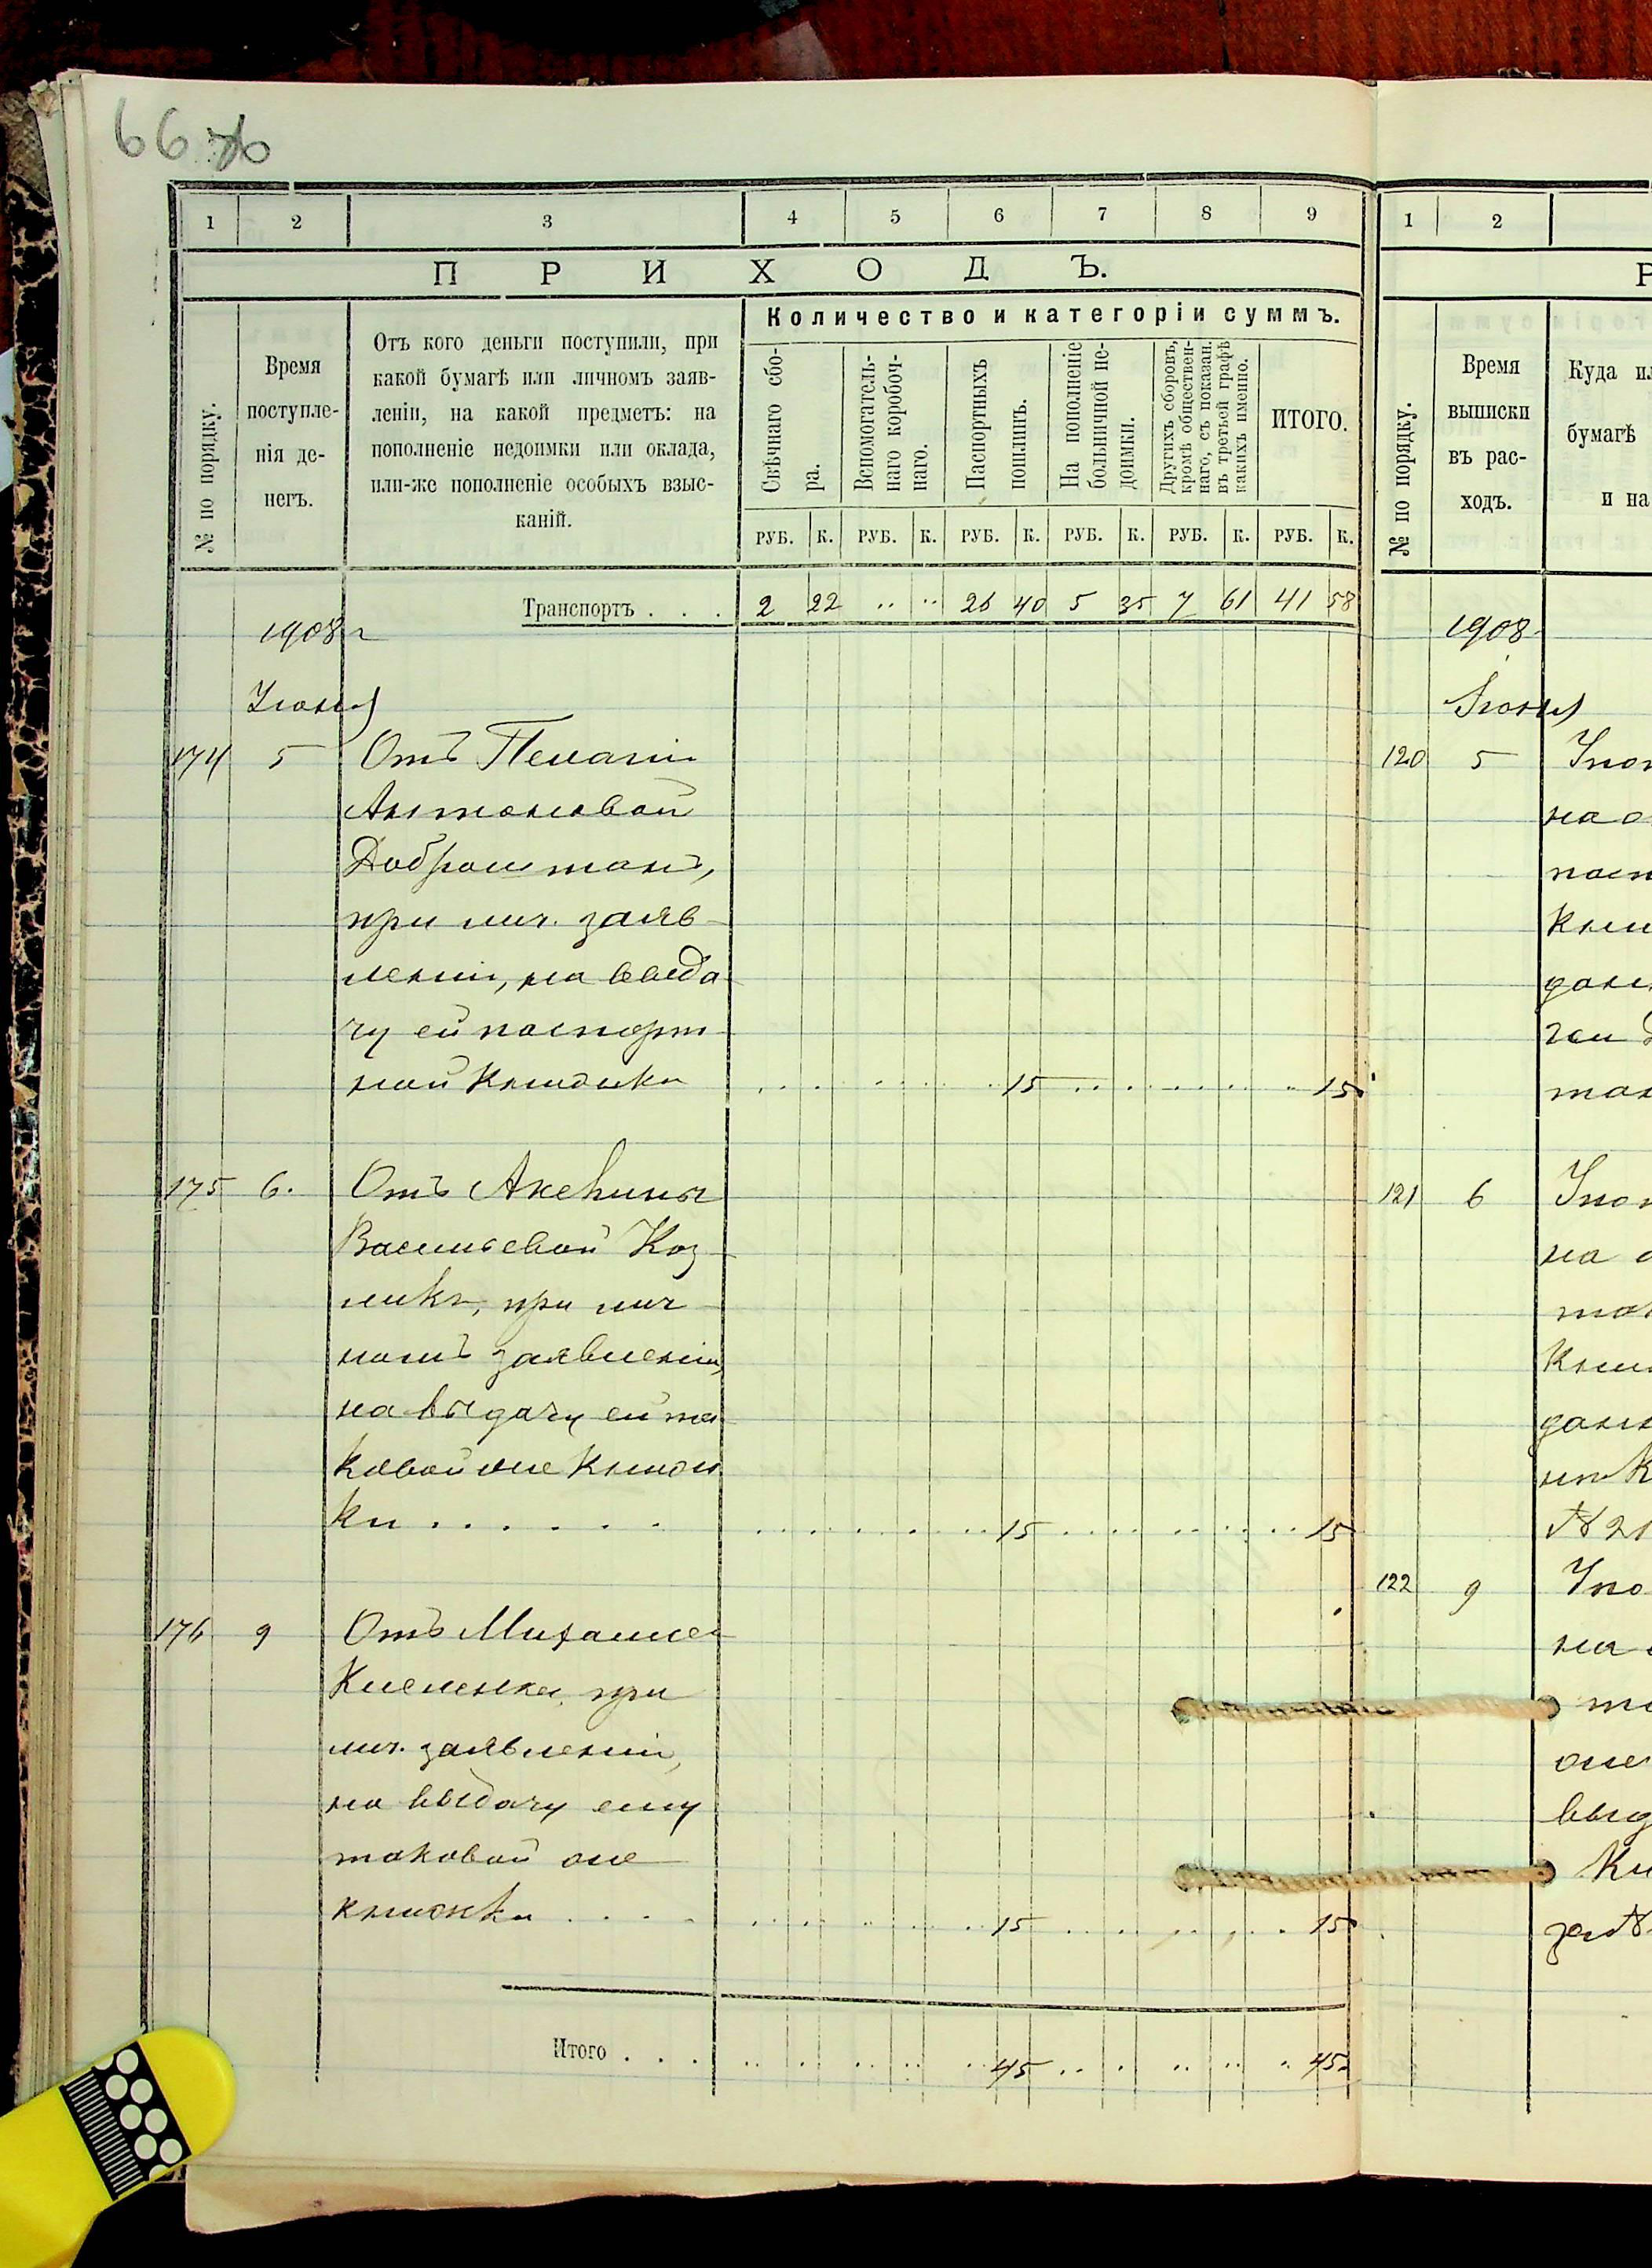 66
1 2 3 4 5 6 7 8 9
ПРИХОДЪ.
№ по порядку.
Время
поступле-
нія де-
негъ.
Отъ кого деньги поступили, при
какой бумагѣ или личномъ заяв-
леніи, на какой предметъ: на
пополненіе недоимки или оклада,
или-же пополненіе особыхъ взыс-
каній.
Количество и категоріи суммъ.
Свѣчнаго сбо-
ра.
Вспомогатель-
наго коробоч-
наго.
Паспортныхъ
пошлинъ.
На пополненіе
больничной не-
доимки.
Другихъ сборовъ,
кромѣ обществен-
наго, съ показан.
въ третьей графѣ
какихъ именно.
ИТОГО.
РУБ. К. РУБ. К. РУБ. К. РУБ. К. РУБ. К. РУБ. К.
Транспортъ . . . 2 22 .. .. 26 40 5 35 7 61 41 58
1908 г
Іюня
174 5 Отъ Пелагіи
Антоновой
Доброштанъ,
при лич. заяв-
леніи, на выда-
чу ей паспорт-
ной книжки 15 15
175 6. Отъ Аксеньи
Васильевой Коз-
лика, при лич-
номъ заявленіи,
на выдачу ей та-
ковой же книж-
ки . . . . . . 15 15
176 9 Отъ Михаила
при
лич. заявленіи,
на выдачу ему
таковой же
книжки . . . . 15 15
Итого . . . 45 45
1 2
Р
№ по порядку.
Время
выписки
въ рас-
ходъ.
Куда ил
бумагѣ
и на
1908
Іюня
120 5
на о
121 6
на о
№ 21
122 9
на
выд
за №